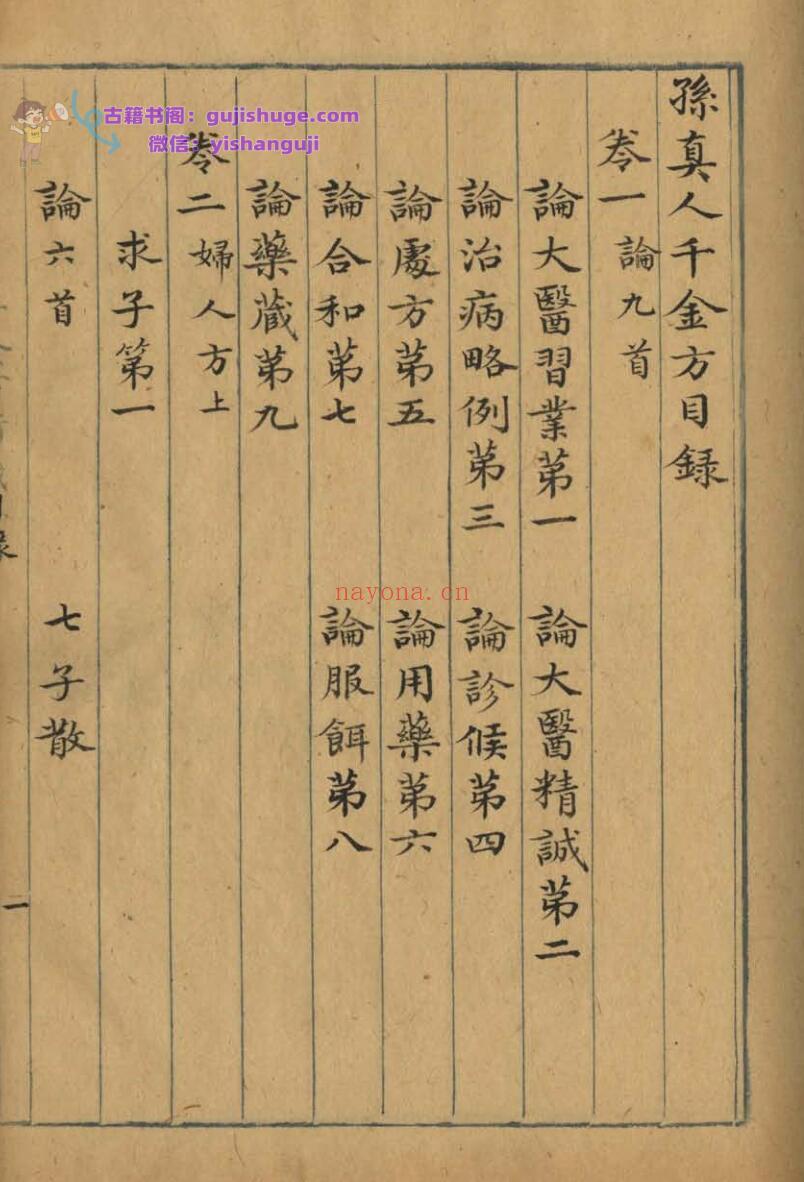 孫真人千金方目録
卷一 論九首
論大醫習業第一 論大醫精誠第二
論治病略例第三 論診候第四
論處方第五 論用藥第六
論合和第七 論服餌第八
論藥藏第九
卷二 婦人方上
求子第一
論六首 七子散
一
古籍书阁：gujishuge.com
微信：yishanguji
nayona.cn